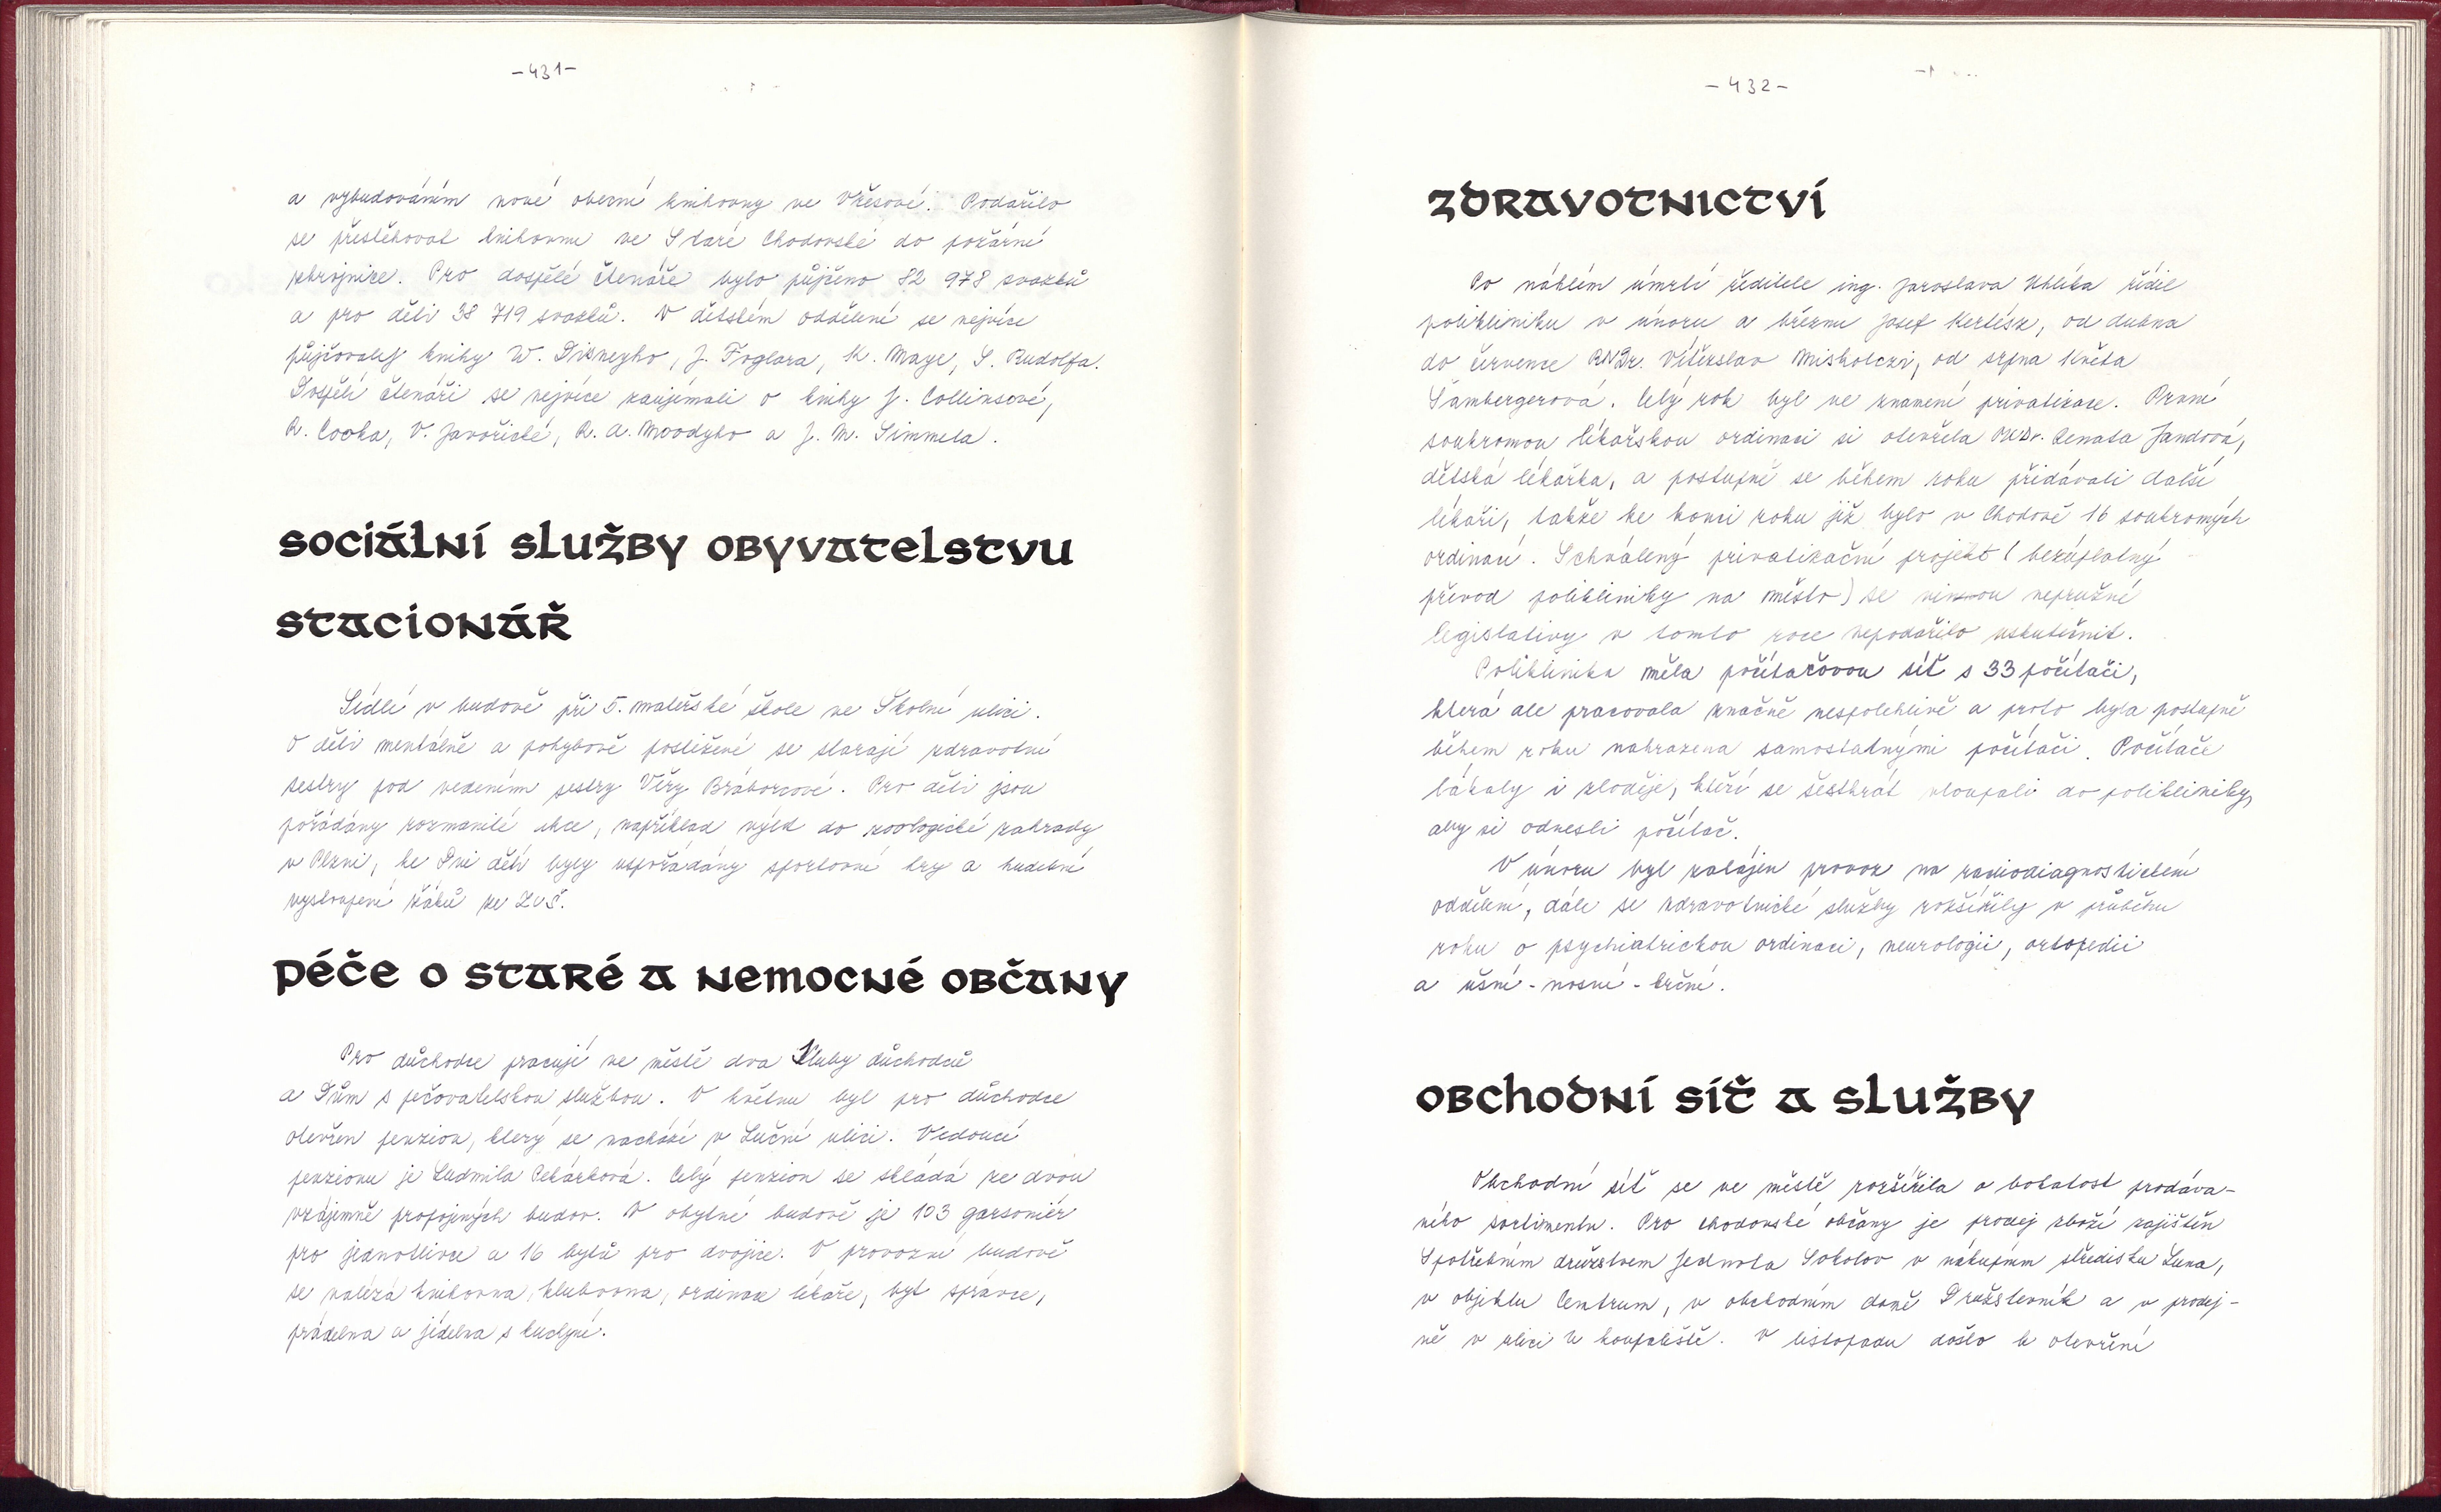 -431-
a vybudováním nové obecní knihovny ve Vřesové. Podařilo
se přestěhovat knihovnu ve Staré Chodovské do požární
zbrojnice. Pro dospělé čtenáře bylo půjčeno 82 978 svazků
a pro děti 38 719 svazků. V dětském oddělení se nejvíce
půjčovaly knihy W. Disneyho, J. Foglara, K. Maye, S. Rudolfa.
Dospělí čtenáři se nejvíce zaujímali o knihy J. Collinsové,
R. Cooka, V. Javořické, R. A. Moodyho a J. M. Simmela.
sociální služby obyvatelstvu
stacionář
Sídlí v budově při 5. mateřské škole ve Školní ulici.
O děti mentálně a pohybově postižené se starají zdravotní
sestry pod vedením sestry Věry Bráborcové. Pro děti jsou
pořádány rozmanité akce, například výlet do zoologické zahrady
v Plzni, ke Dni dětí byly uspořádány sportovní hry a hudební
vystoupení žáků ze ZUŠ.
péče o staré a nemocné občany
Pro důchodce pracují ve městě dva Kluby důchodců
a Dům s pečovatelskou službou. V květnu byl pro důchodce
otevřen penzion, který se nachází v Luční ulici. Vedoucí
penzionu je Ludmila Pekárková. Celý penzion se skládá ze dvou
vzájemně propojených budov. V obytné budově je 103 garsoniér
pro jednotlivce a 16 bytů pro dvojice. V provozní budově
se nalézá knihovna, klubovna, ordinace lékaře, byt správce,
prádelna a jídelna s kuchyní.
-432-
zdravotnictví
Po náhlém úmrtí ředitele ing. Jaroslava Uhlíka řídil
polikliniku v únoru a březnu Josef Kertész, od dubna
do července RNDr. Vítězslav Miskolczi, od srpna Květa
Šambergerová. Celý rok byl ve znamení privatizace. První
soukromou lékařskou ordinaci si otevřela MUDr. Renata Jandová,
dětská lékařka, a postupně se během roku přidávali další
lékaři, takže ke konci roku již bylo v Chodově 16 soukromých
ordinací. Schválený privatizační projekt (bezúplatný
převod polikliniky na město) se vinou nepružné
legislativy v tomto roce nepodařilo uskutečnit.
Poliklinika měla počítačovou síť s 33 počítači,
která ale pracovala značně nespolehlivě a proto byla postupně
během roku nahrazena samostatnými počítači. Počítače
lákaly i zloděje, kteří se šestkrát vloupali do polikliniky,
aby si odnesli počítač.
V únoru byl zahájen provoz na radiodiagnostickém
oddělení, dále se zdravotnické služby rozšířily v průběhu
roku o psychiatrickou ordinaci, neurologii, ortopedii
a ušní-nosní-krční.
obchodní síť a služby
Obchodní síť se ve městě rozšířila o bohatost prodáva-
ného sortimentu. Pro chodovské občany je prodej zboží zajištěn
Spotřebním družstvem Jednota Sokolov v nákupním středisku Luna,
v objektu Centrum, v obchodním domě Družstevník a v prodej-
ně v ulici U koupaliště. V listopadu došlo k otevření